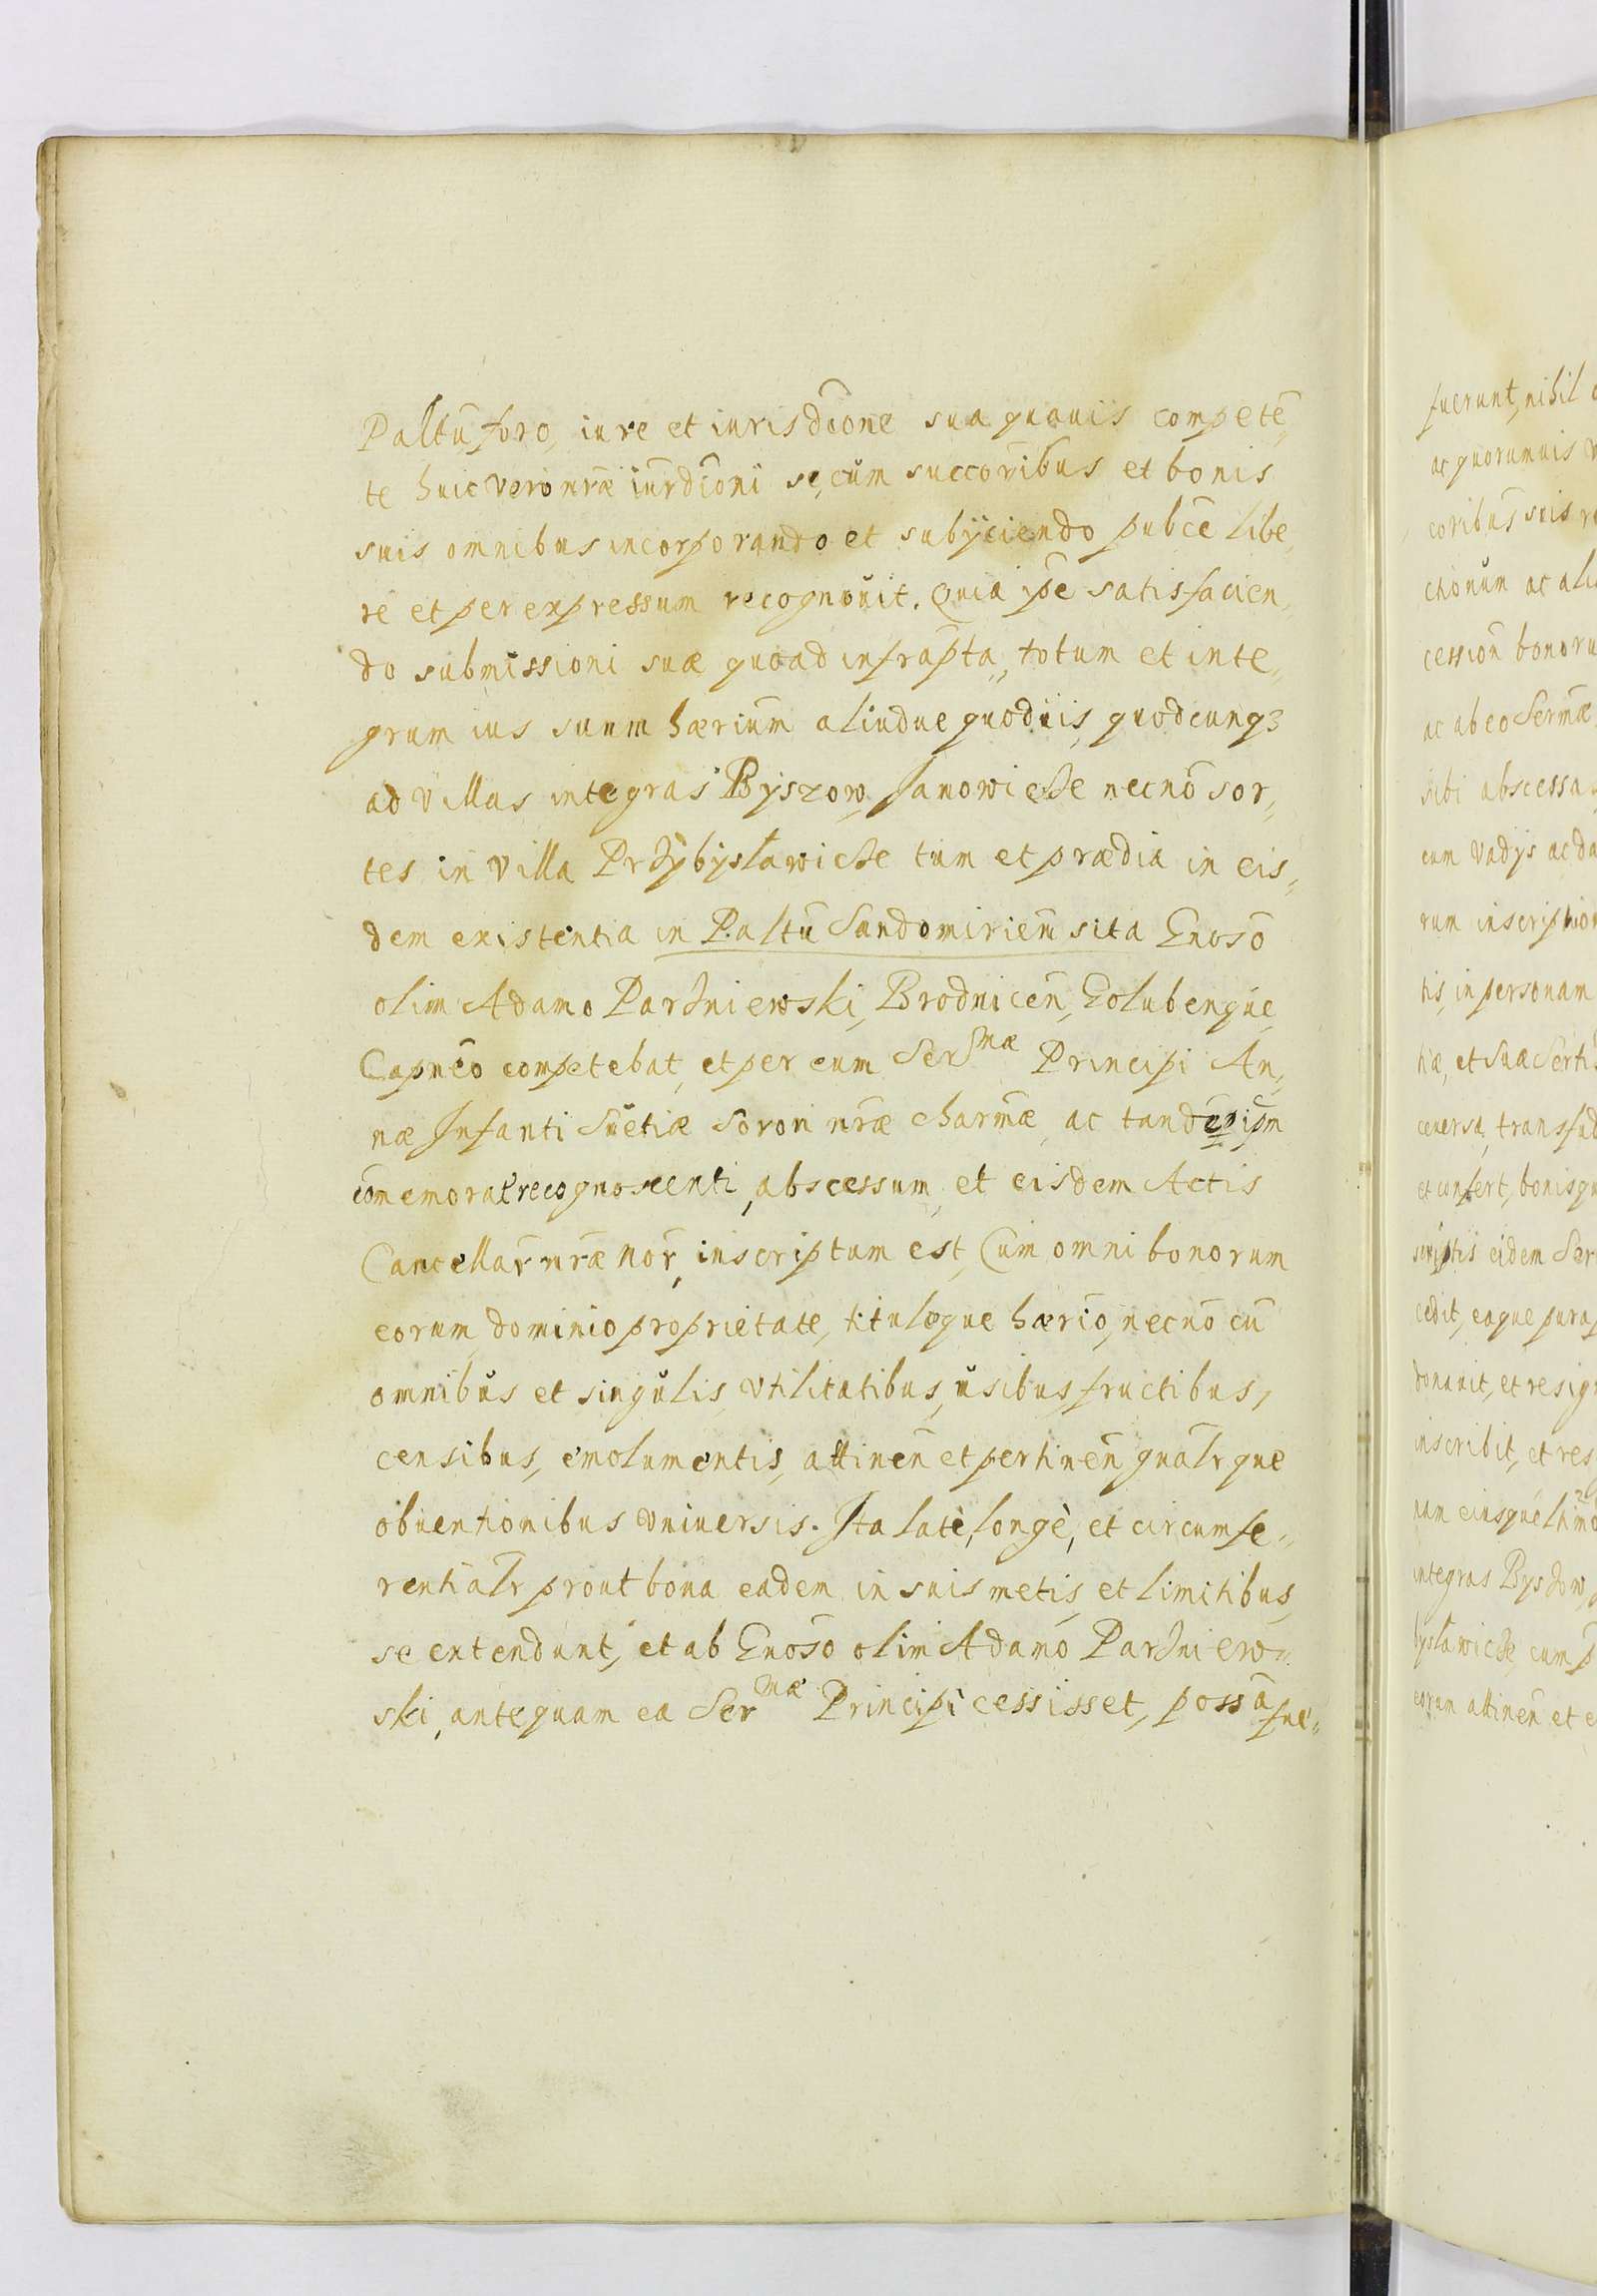 Paltũ foro, iure et iurisdc̃one sua quauis competẽ,,
te huic vero nr̃æ iurdic̃oni se, cum succoribus et bonis
suis omnibus incorporando et subijciendo pubce libe,,
re et per expressum recognouit. Quia ip̃e satisfacien,,
do submissioni suæ quoad infrapta, totum et inte,,
grum ius suum hærium aliudue quoduis, quodcunq3
ad villas integras Byszow, Janowicze necnõ sor,,
tes in villa Przybysławicze tum et prædia in eis,,
dem existentia in Paltũ Sandomirien̄ sita Gnoso
olim Adamo Parzniewski, Brodnicen̄, Golubenque
Capneo competebat, et per eum Ser^mæ Principi An,,
næ Infanti Suetiæ Sorori nr̃æ charmæ, ac tand
com̃emorat recognoscenti, abscessum, et eisdem Actis
Cancellar̃ nr̃æ Nor̃, inscriptum est, Cum omni bonorum
eorum, dominio proprietate, tituloque hærio, necnõ cũ
omnibus et singulis, vtilitatibus, usibus fructibus,
censibus, emolumentis, attinen̄ et pertinen̄ gnalr que
obuentionibus vniuersis. Ita latè, longè, et circumfe,,
rentialr prout bona eadem in suis metis, et limitibus,
se extendunt, et ab Gnoso olim Adamo Parzniew,,
ski, antequam ea Ser^mæ Principi cessisset, possa fue,,
fuerunt, nihil
ac quorumuis
coribus suis
ctionum ac
cession bonoru
ac ab eo Sermæ
sibi abscessa
cum Vadys ac
rum inscription
tis, in personam
tiæ, et suæ
ceuersa, transfud
et confert, bonisqu
scriptis eidem Ser
cedit, eaque pura
donauit, et resig
inscribit, et res
num eiusque
integras Byszow,
bysławicze, cum
eorum attinen̄ et